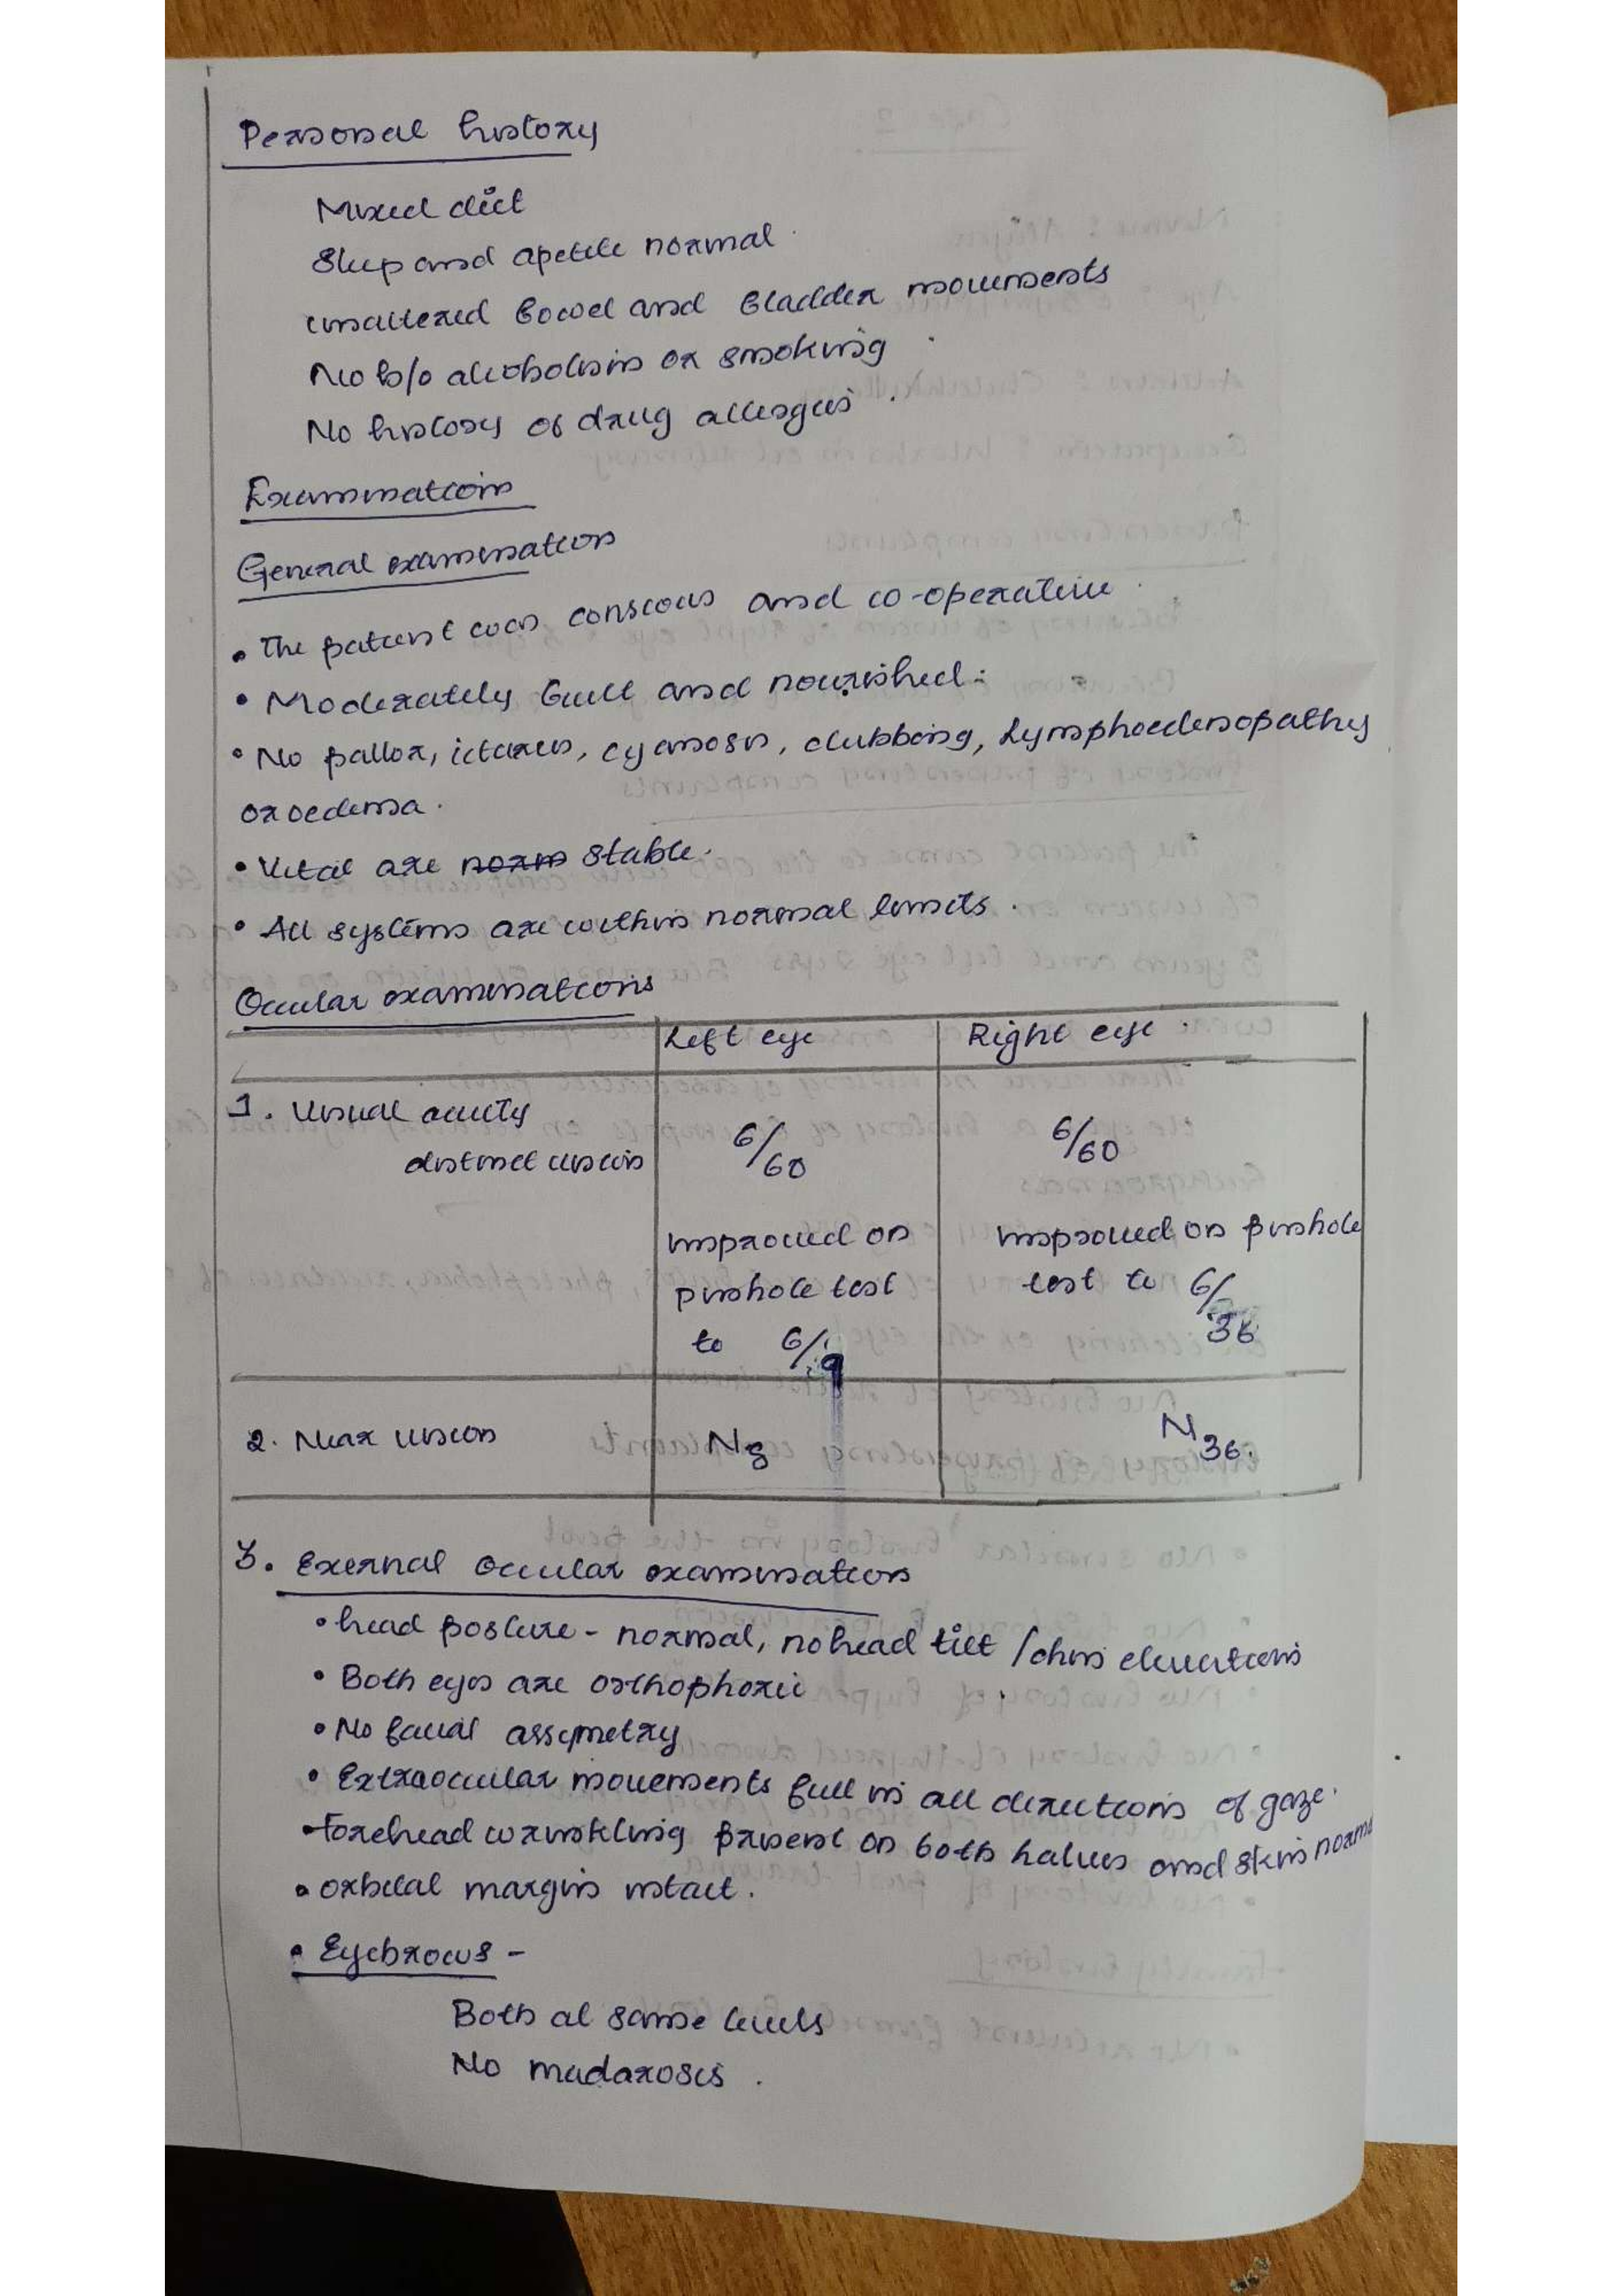 Personal history
Mixed diet
Sleep and apetite normal.
unaltered bowel and bladder movements
No h/o alcoholism or smoking.
No history of drug allergies.
Examination
General examination
• The patient was conscous and co-operative.
• Moderately built and nourished.
• No pallor, ictarus, cyanosis, clubbing, Lymphoedenopathy
or oedema.
• Vital are norm stable.
• All systems are within normal limits.
Ocular examinations
Left eye Right eye.
1. Visual acuity
distinct vision 6/60 6/60
improved on improved on pinhole
pinhole test test to 6/36
to 6/9
2. Near vision N8 N36.
3. Exernal Ocular examination
• head posture - normal, no head tilt / chin elevations
• Both eyes are orthophoric
• No facial assymetry
• Extraocular movements full in all directions of gaze.
• Forehead wrinkling present on both halves and skin norma
• orbital margin intact.
• Eyebrows -
Both at same levels
No madarosis.